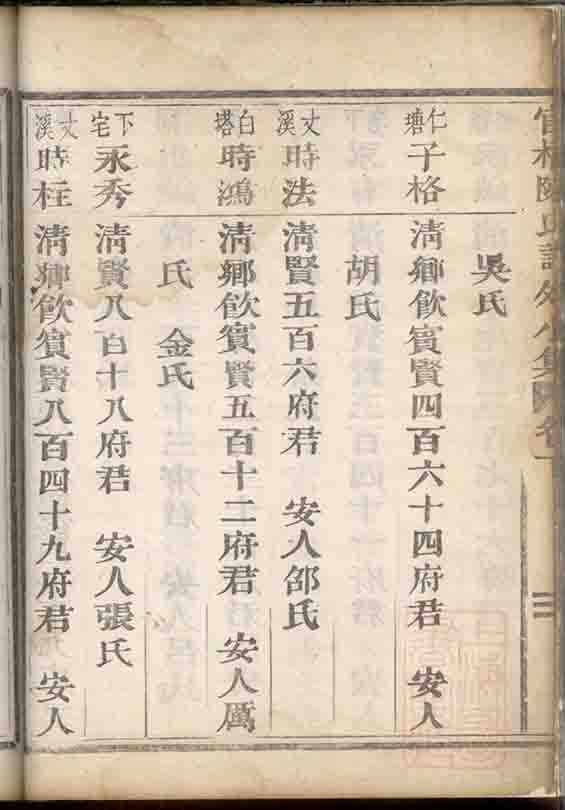 吳氏
仁塘 子格 清鄉飲賓賢四百六十四府君 安人
胡氏
丈溪 時法 清賢五百六府君 安人邵氏
白塔 時鴻 清鄉飲賓賢五百十二府君 安人厲
氏 金氏
下宅 永秀 清賢八百十八府君 安人張氏
丈溪 時柱 清鄉飲賓賢八百四十九府君 安人